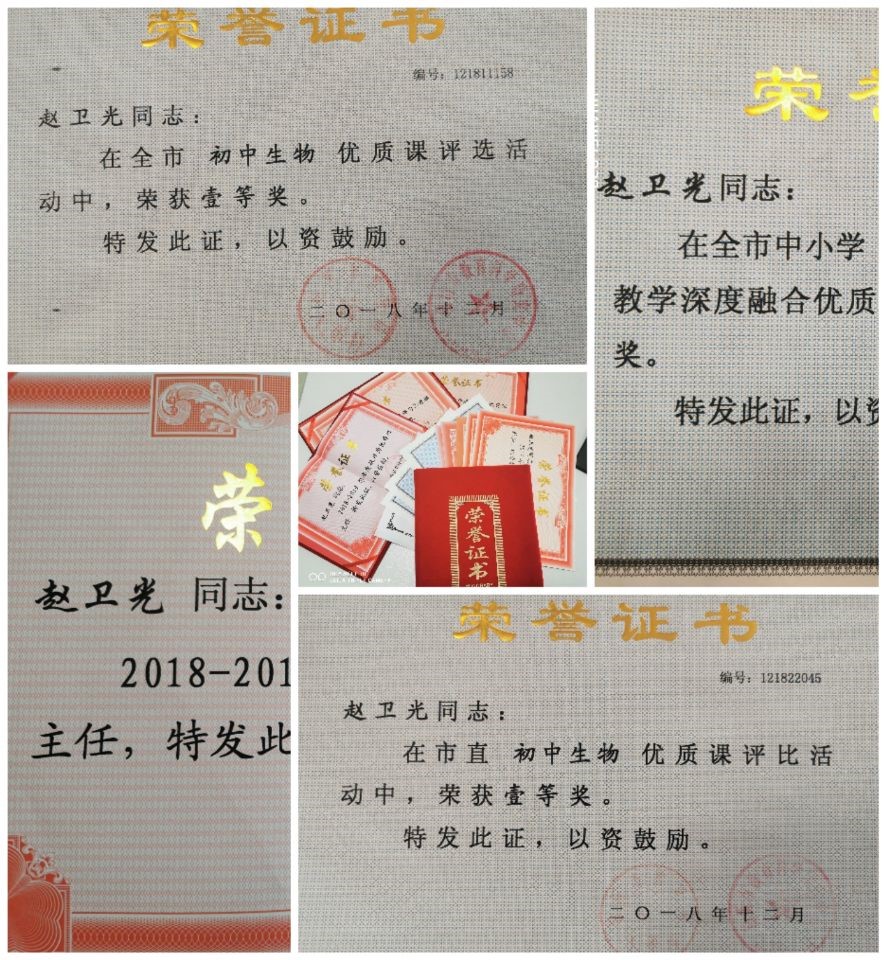 荣誉证书
编号：121811158
赵卫光同志：
在全市 初中生物 优质课评选活
动中，荣获壹等奖。
特发此证，以资鼓励。
二〇一八年十二月
荣
赵卫光同志：
在全市中小学
教学深度融合优质
奖。
特发此证，以资
荣
赵卫光 同志：
2018-201
主任，特发此
荣誉证书
荣誉证书
荣誉证书
荣誉证书
编号：121822045
赵卫光同志：
在市直 初中生物 优质课评比活
动中，荣获壹等奖。
特发此证，以资鼓励。
二〇一八年十二月